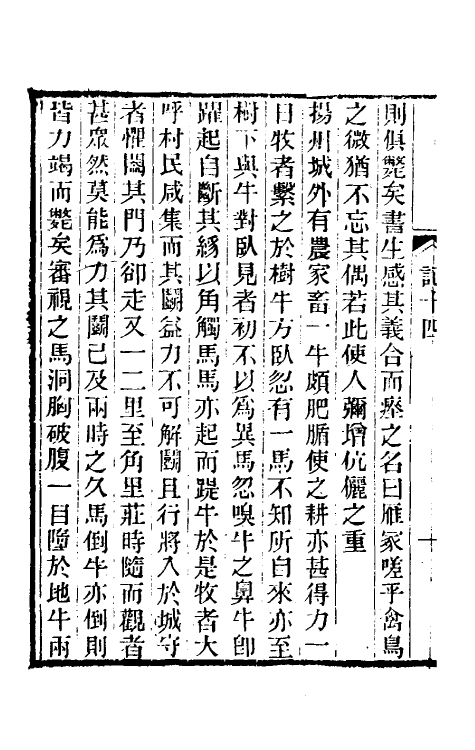 則俱斃矣書生感其義合而瘞之名曰雁冢嗟乎禽鳥
之微猶不忘其偶若此使人彌增伉儷之重
揚州城外有農家畜一牛頗肥腯使之耕亦甚得力一
日牧者繫之於樹牛方臥忽有一馬不知所自來亦至
樹下與牛對臥見者初不以爲異馬忽嗅牛之鼻牛卽
躍起自斷其絼以角觸馬馬亦起而踶牛於是牧者大
呼村民咸集而其鬭益力不可解鬭且行將入於城守
者懼闔其門乃卻走又一二里至角里莊時隨而觀者
甚眾然莫能爲力其鬭已及兩時之久馬倒牛亦倒則
皆力竭而斃矣審視之馬洞胸破腹一目墮於地牛兩
記十四
十